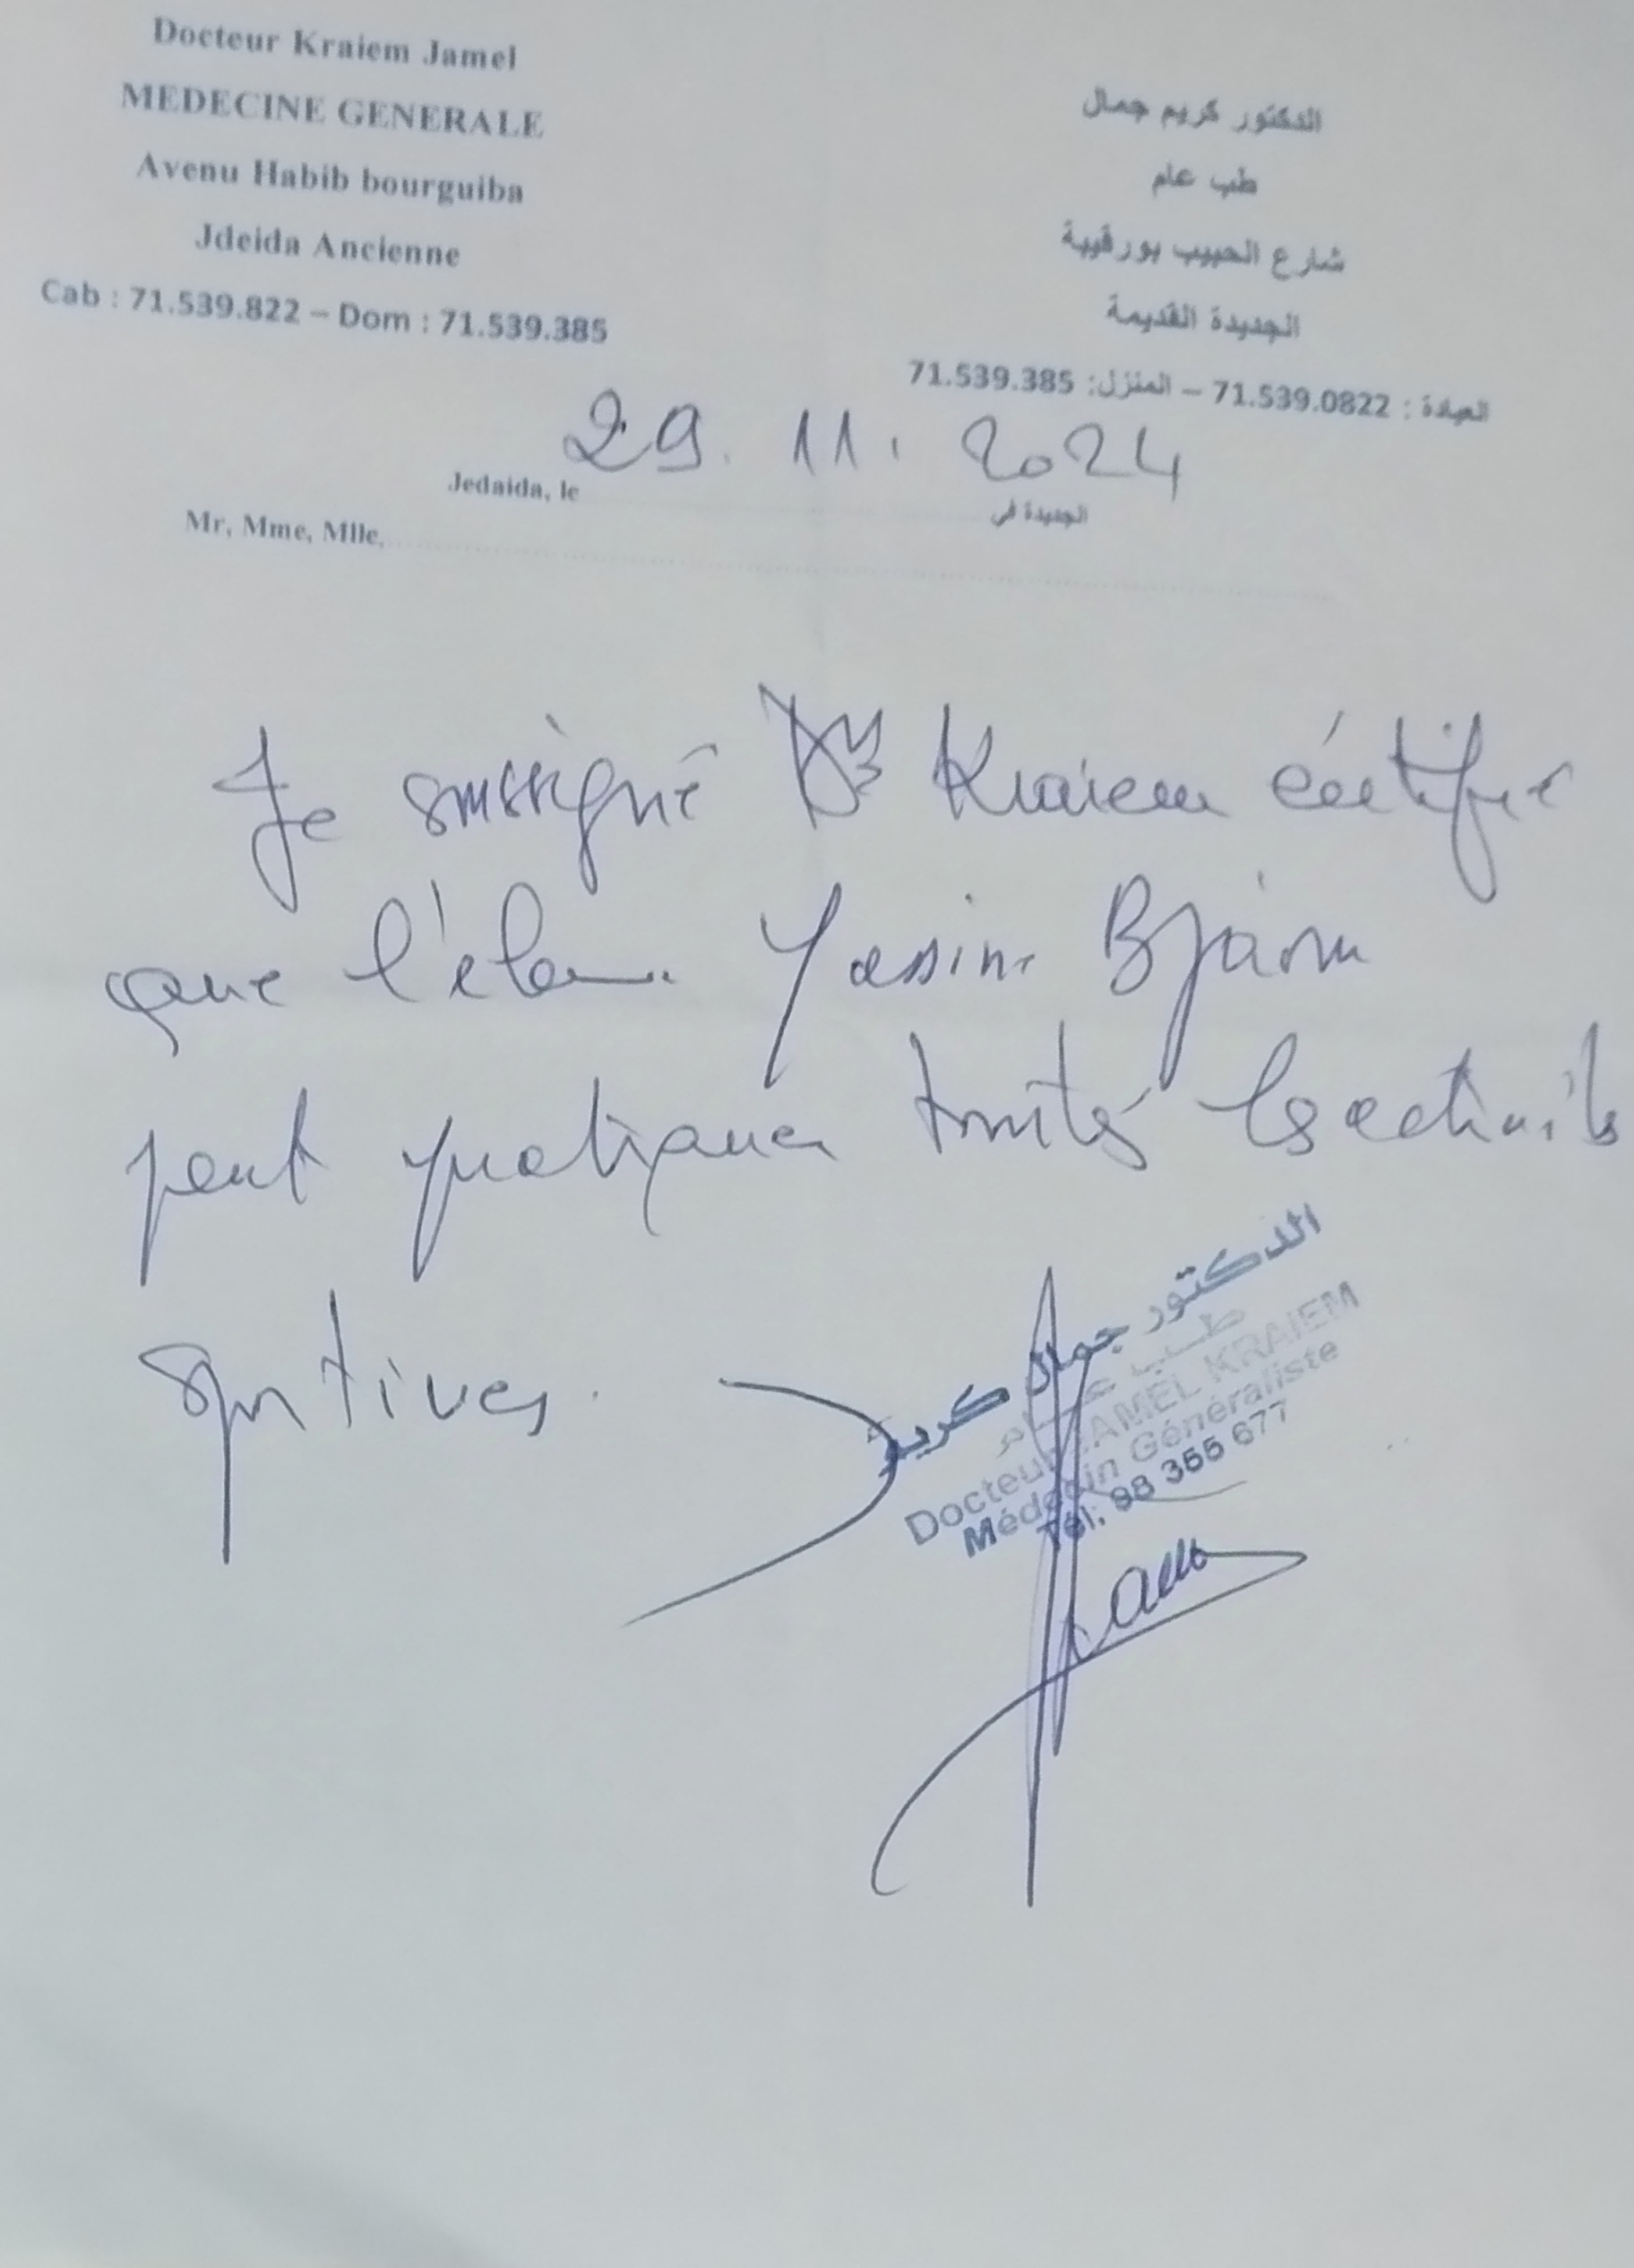 Docteur Kraiem Jamel
MEDECINE GENERALE
Avenu Habib bourguiba
Jdeida Ancienne
Cab : 71.539.822 – Dom : 71.539.385
الدكتور كريم جمال
طب عام
شارع الحبيب بورقيبة
الجديدة القديمة
العيادة : 71.539.0822 – المنزل: 71.539.385
Jedaida, le 29.11.2024 الجديدة في
Mr, Mme, Mlle,
Je soussigné Dr Kraiem certifie
que l'élève Yassine
peut pratiquer toutes les activités
sportives.
الدكتور جمال كريم
طب عام
Docteur JAMEL KRAIEM
Médecin Généraliste
Tél: 98 355 677